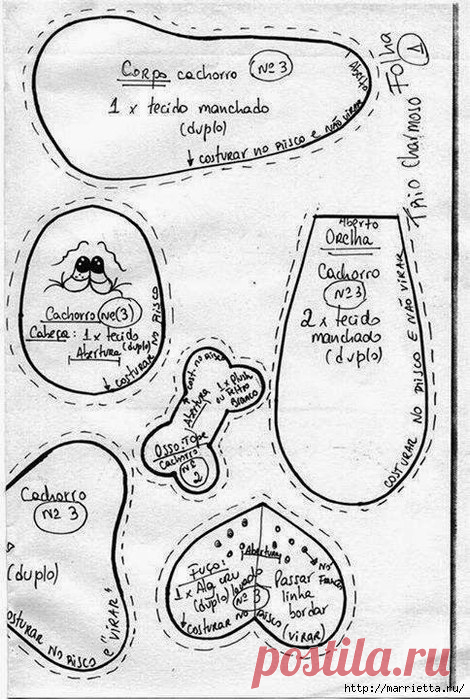 Folha 1
Trio Charmoso
Corpo cachorro Nº 3
1 x tecido manchado
(duplo)
Aberto
↓ costurar no risco e não virar
Cachorro (nº 3)
Cabeça: 1 x tecido
(duplo)
Abertura
↓ costurar no risco
Aberto
Orelha
Cachorro
Nº 3
2 x tecido
manchado
(duplo)
costurar no risco e não virar
cost. no risco
Abertura
1 x Plush
ou Feltro
Branco
Osso:
Cachorro
Nº 2
Cachorro
Nº 3
(duplo)
costurar no risco e "virar"
Abertura
Fuço:
1 x Algodão cru
(duplo)
Nº 3
↓ costurar no risco
(virar)
Passar
linha
bordar
postila.ru
http://marrietta.ru/